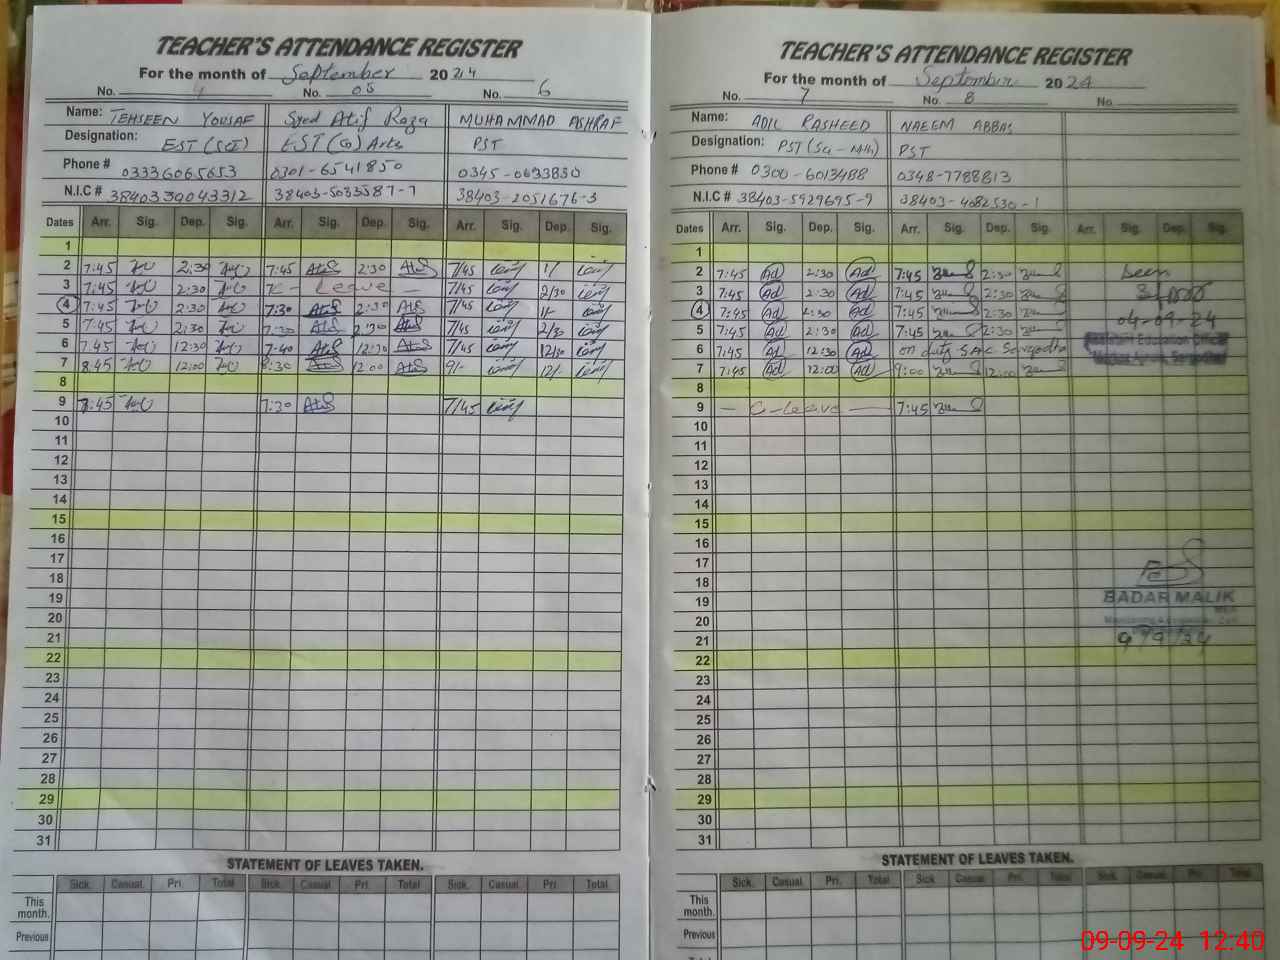 TEACHER'S ATTENDANCE REGISTER
For the month of September 2024
No. 4 No. 05 No. 6
Name: TEHSEEN YOUSAF Syed Atif Raza MUHAMMAD ASHRAF
Designation: EST (SCI) EST (G) Arts PST
Phone # 03336065653 0301-6541850 0345-0633830
N.I.C # 3840339043312 38403-5033587-7 38403-2051676-3
Dates Arr. Sig. Dep. Sig. Arr. Sig. Dep. Sig. Arr. Sig. Dep. Sig.
1
2 7:45 2:30 7:45 Atif 2:30 Atif 7/45 1/
3 7:45 2:30 Leave 7/45 2/30
4 7:45 2:30 7:30 Atif 2:30 Atif 7/45
5 7:45 2:30 7:30 Atif 2:30 Atif 7/45 2/30
6 7:45 12:30 7:40 Atif 12:30 Atif 7/45 12/30
7 8:45 12:00 8:30 Atif 12:00 Atif 9/- 12/-
8
9 7:45 7:30 Atif 7/45
10
11
12
13
14
15
16
17
18
19
20
21
22
23
24
25
26
27
28
29
30
31
STATEMENT OF LEAVES TAKEN.
Sick. Casual. Pri. Total Sick. Casual. Pri. Total Sick. Casual. Pri. Total
This month.
Previous
TEACHER'S ATTENDANCE REGISTER
For the month of September 2024
No. 7 No. 8 No.
Name: ADIL RASHEED NAEEM ABBAS
Designation: PST (Sci - Mth) PST
Phone # 0300-6013488 0348-7788813
N.I.C # 38403-5929695-9 38403-4082530-1
Dates Arr. Sig. Dep. Sig. Arr. Sig. Dep. Sig. Arr. Sig. Dep. Sig.
1
2 7:45 Ad 2:30 Ad 7:45 2:30 Seen
3 7:45 Ad 2:30 Ad 7:45 2:30
4 7:45 Ad 2:30 Ad 7:45 2:30 04-09-24
5 7:45 Ad 2:30 Ad 7:45 2:30 Assistant Education Officer
6 7:45 Ad 12:30 Ad on duty SAC Sargodha
7 7:45 Ad 12:00 Ad 9:00 12:00
8
9 - C-Leave - 7:45
10
11
12
13
14
15
16
17
18
19
BADAR MALIK
20
MEA
21
9/9/24
22
23
24
25
26
27
28
29
30
31
STATEMENT OF LEAVES TAKEN.
Sick. Casual. Pri. Total Sick Casual. Pri. Total Sick Casual. Pri. Total
This month.
Previous
Total
09-09-24 12:40